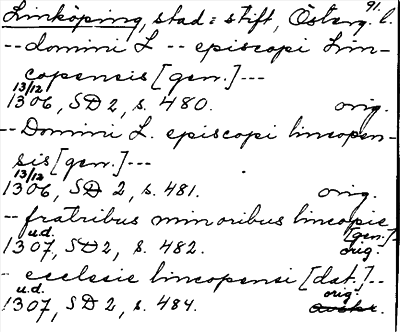 91.
Linköping, stad o stift, Österg. l.
-- domini L -- episcopi Lin-
copensis [gen.] ---
13/12
1306, SD 2, s. 480. orig.
-- Domini L. episcopi lincopen-
sis [gen.] ---
13/12
1306, SD 2, s. 481. orig.
-- fratribus minoribus lincopie
[gen.]-
u.d.
1307, SD 2, s. 482. orig.
- ecclesie lincopensi [dat.] --
u.d. orig.
1307, SD 2, s. 484.